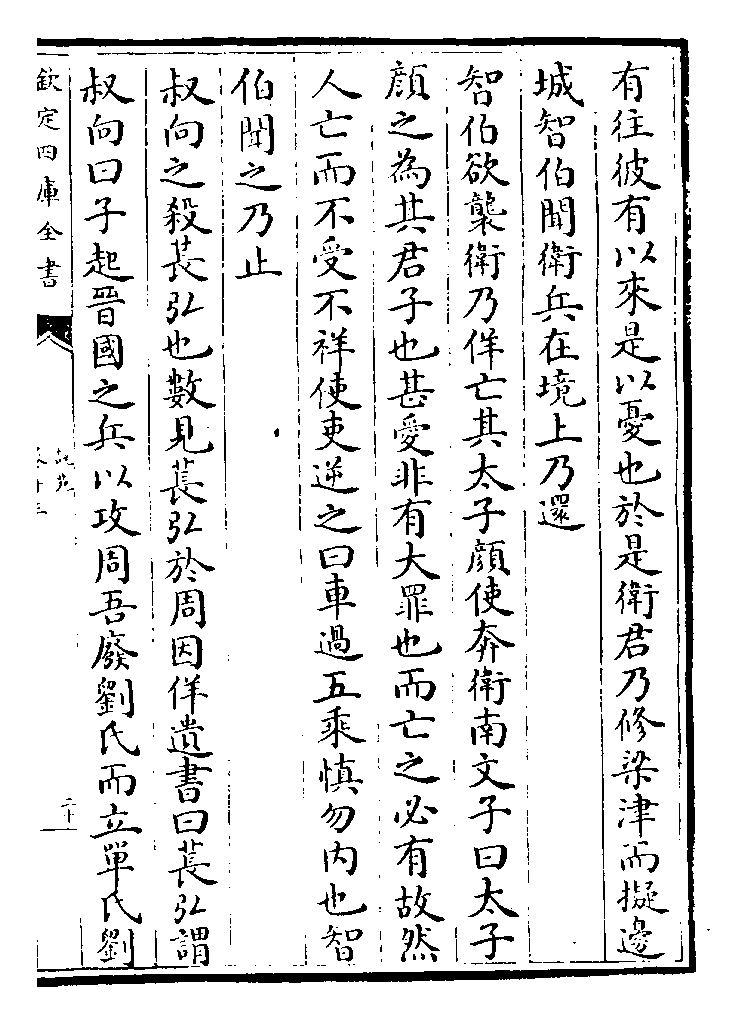 有往彼有以來是以憂也於是衛君乃修梁津而擬邊
城智伯聞衛兵在境上乃還
智伯欲襲衛乃佯亡其太子顔使奔衛南文子曰太子
顔之為其君子也甚愛非有大罪也而亡之必有故然
人亡而不受不祥使吏逆之曰車過五乘慎勿内也智
伯聞之乃止
叔向之殺萇弘也數見萇弘於周因佯遺書曰萇弘謂
叔向曰子起晉國之兵以攻周吾廢劉氏而立單氏劉
欽定四庫全書
說苑
卷十三
二十